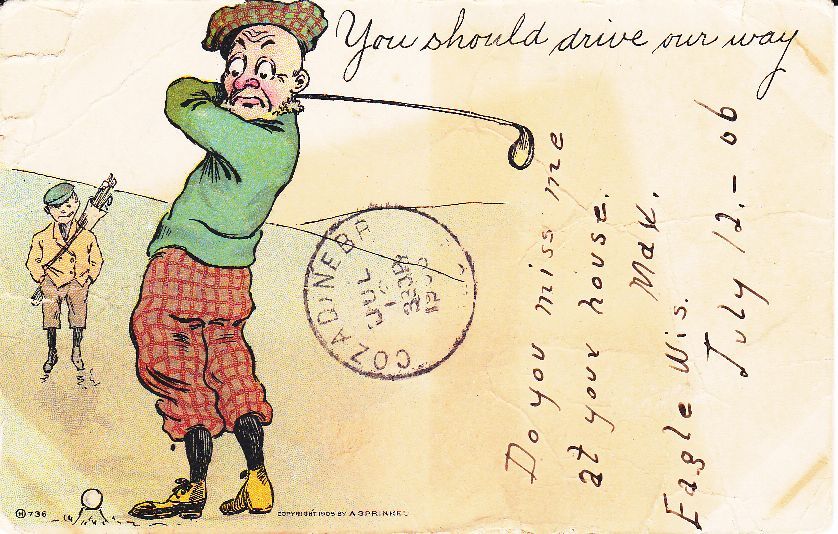 You should drive our way
Do you miss me
at your house.
Max.
Eagle Wis.
July 12.-06
COZAD, NEBR
JUL
1906
H 736
COPYRIGHT 1905 BY A SPRINKEL